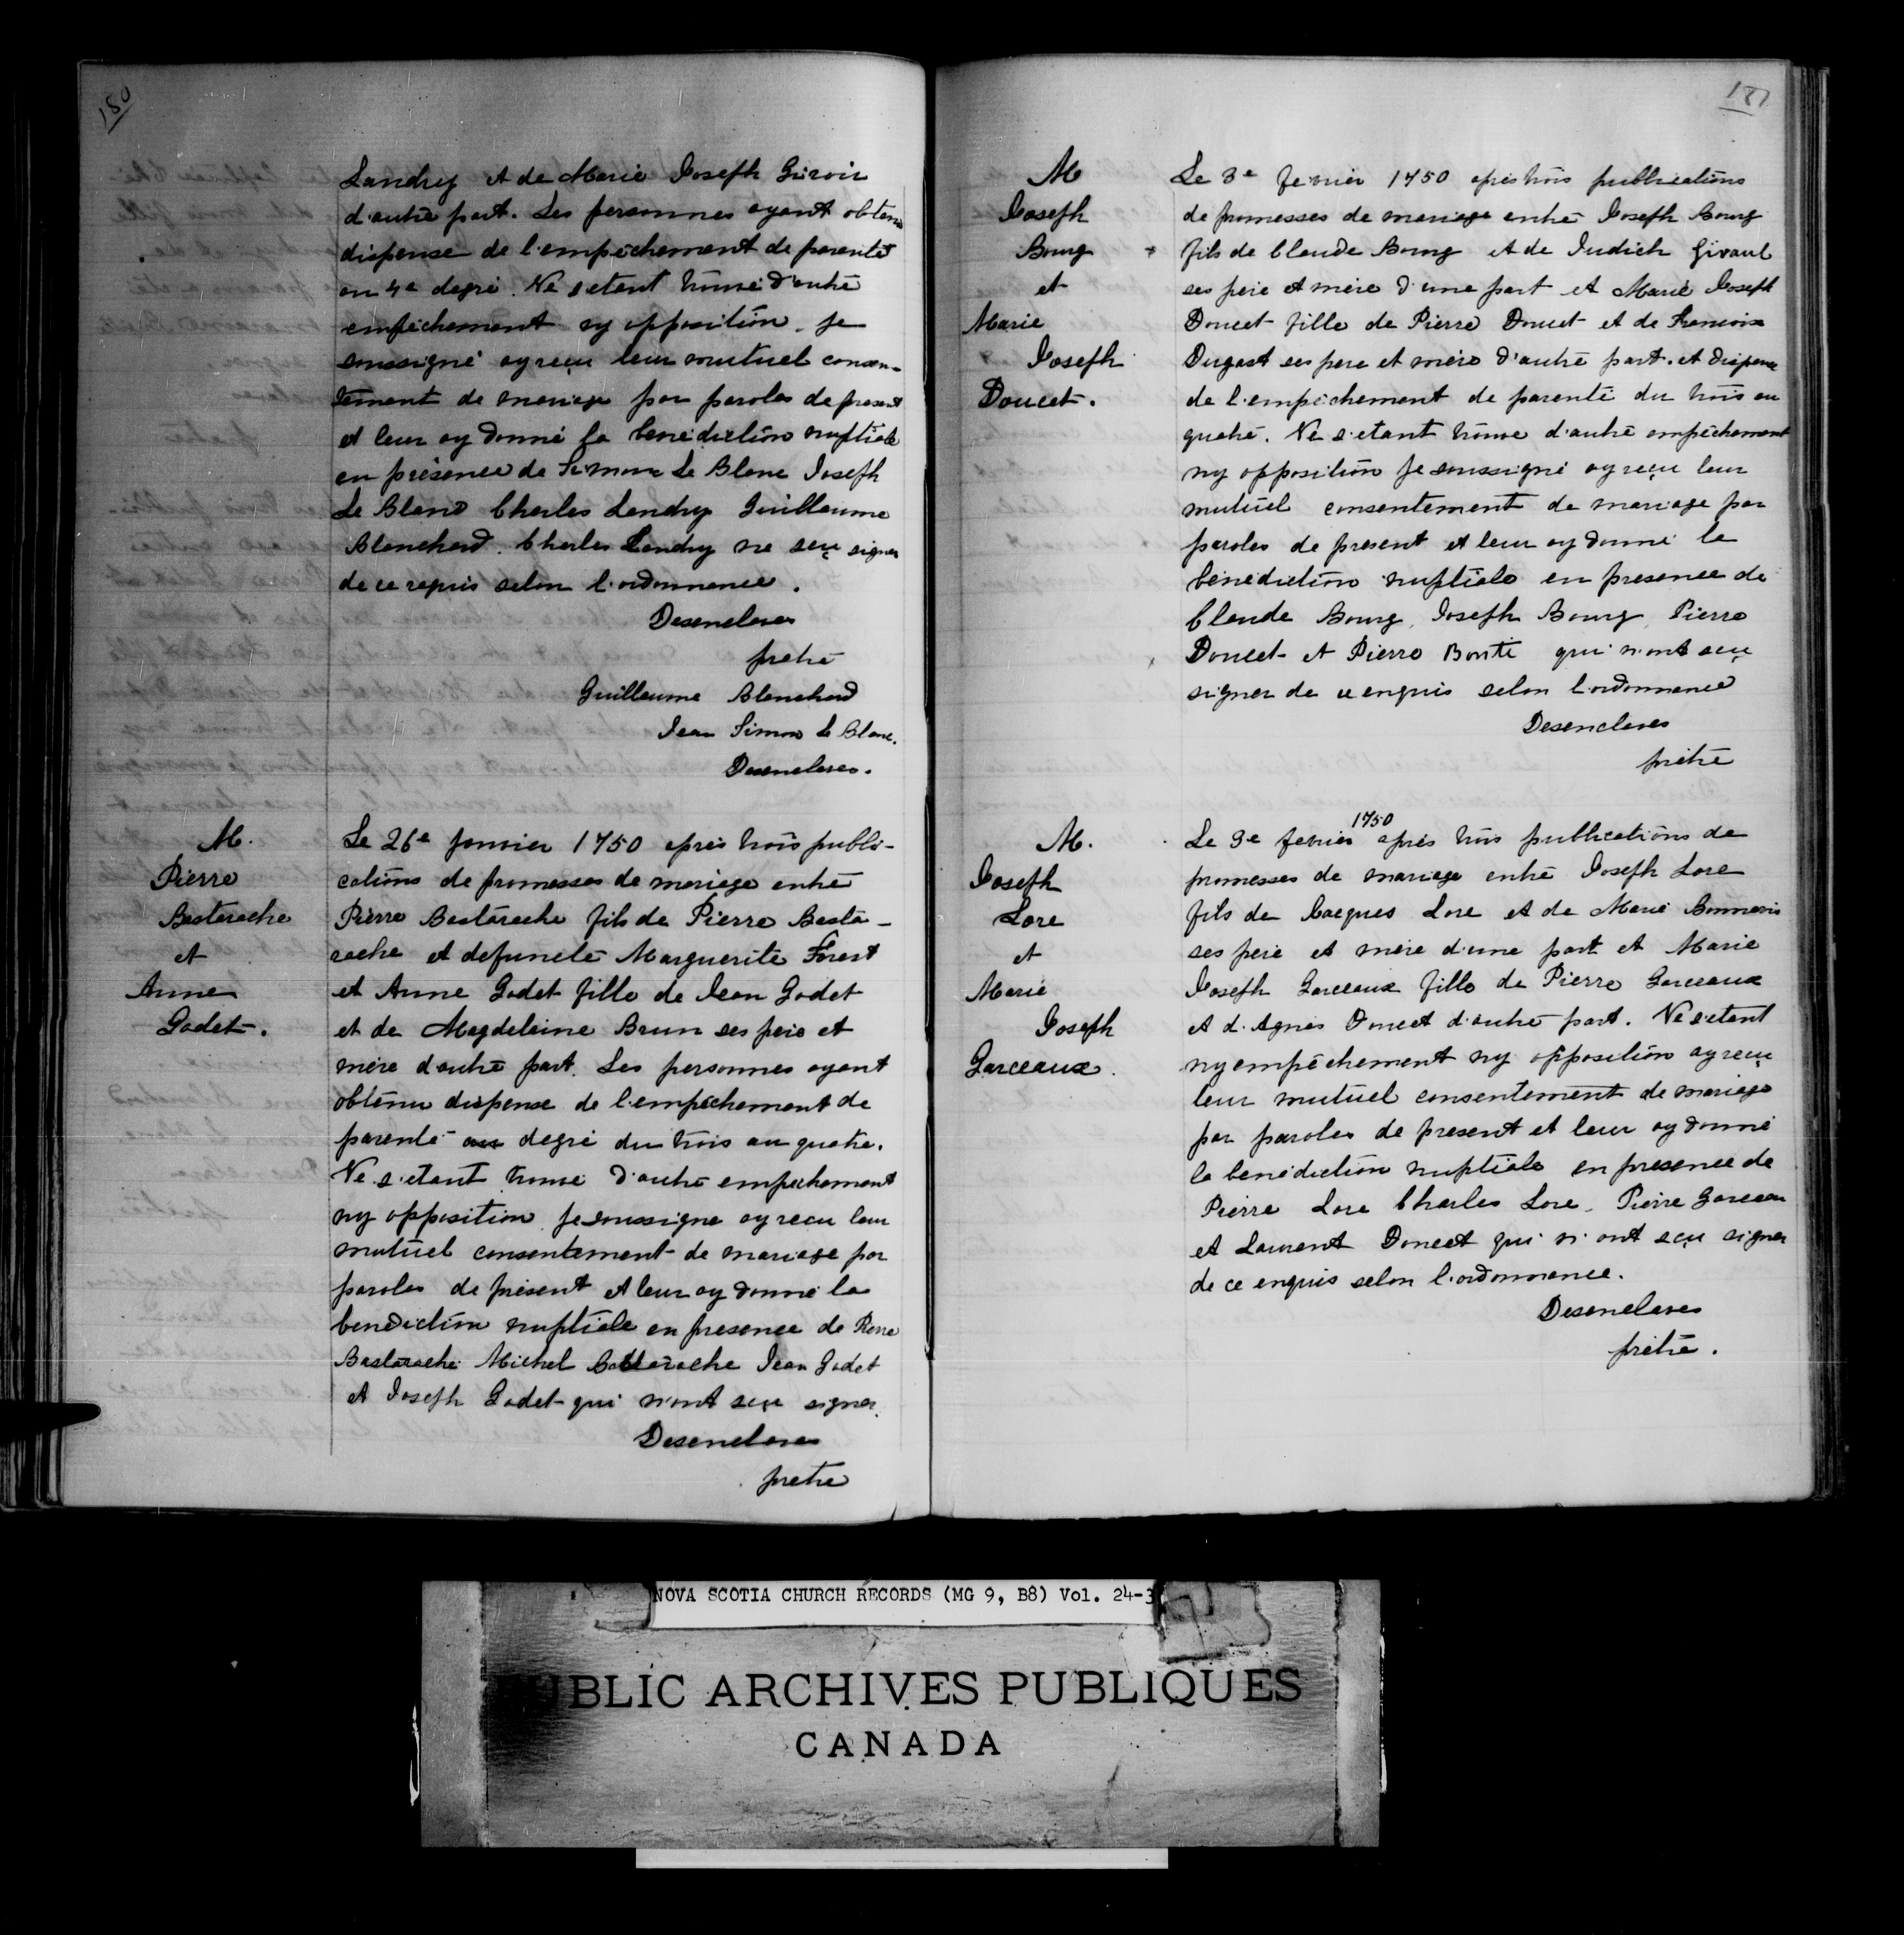 180
Landry et de Marie Joseph Giroir
d'autre part. Les personnes ayant obtenu
dispense de l'empechement de parenté
au 4e degré. Ne s'etant trouvé d'autre
empêchement ny opposition je
soussigné ay reçu leur mutuel consen-
tement de mariage par paroles de present
et leur ay donné la benediction nuptiale
en présence de Simon Le Blanc Joseph
Le Blanc Charles Landry Guillaume
Blanchard. Charles Landry ne sçu signer
de ce requis selon l'ordonnance.
Desenclaves
pretre
Guillaume Blanchard
Jean Simon Le Blanc.
Desenclaves.
M.
Pierre
Bastarache
et
Anne
Godet.
Le 26e janvier 1750 apres trois publi-
cations de promesses de mariage entre
Pierre Bastarache fils de Pierre Basta-
rache et defuncte Marguerite Forest
et Anne Godet fille de Jean Godet
et de Magdeleine Brun ses pere et
mère d'autre part. Les personnes ayant
obtenu dispense de l'empêchement de
parenté au degré du trois au quatre.
Ne s'etant trouvé d'autre empechement
ny opposition je soussigne ay recu leur
mutuel consentement de mariage par
paroles de présent et leur ay donné la
benediction nuptiale en presence de Pierre
Bastarache Michel Bastarache Jean Godet
et Joseph Godet qui n'ont sçu signer.
Desenclaves
pretre
181
M
Joseph
Bourg
et
Marie
Joseph
Doucet.
Le 3e fevrier 1750 apres trois publications
de promesses de mariage entre Joseph Bourg
fils de Claude Bourg et de Judich Girauel
ses pere et mère d'une part et Marie Joseph
Doucet fille de Pierre Doucet et de Francoise
Dugast ses pere et mère d'autre part. et dispense
de l'empêchement de parenté du trois au
quatre. Ne s'etant trouvé d'autre empêchement
ny opposition je soussigné ay reçu leur
mutuel consentement de mariage par
paroles de présent et leur ay donné la
benediction nuptiale en presence de
Claude Bourg, Joseph Bourg, Pierre
Doucet et Pierre Bonte qui n'ont sçu
signer de ce enquis selon l'ordonnance
Desenclaves
prêtre
M.
Joseph
Lore
et
Marie
Joseph
Garceaux.
1750
Le 3e fevrier après trois publications de
promesses de mariage entre Joseph Lore
fils de Jacques Lore et de Marie Bonnevis
ses pere et mère d'une part et Marie
Joseph Garceaux fille de Pierre Garceaux
et d'Agnes Doucet d'autre part. Ne s'etant
ny empêchement ny opposition ay recu
leur mutuel consentement de mariage
par paroles de present et leur ay donné
la benediction nuptiale en presence de
Pierre Lore Charles Lore, Pierre Garceau
et Laurent Doucet qui n'ont sçu signer
de ce enquis selon l'ordonnance.
Desenclaves
prêtre.
NOVA SCOTIA CHURCH RECORDS (MG 9, B8) Vol. 24-3
PUBLIC ARCHIVES PUBLIQUES
CANADA